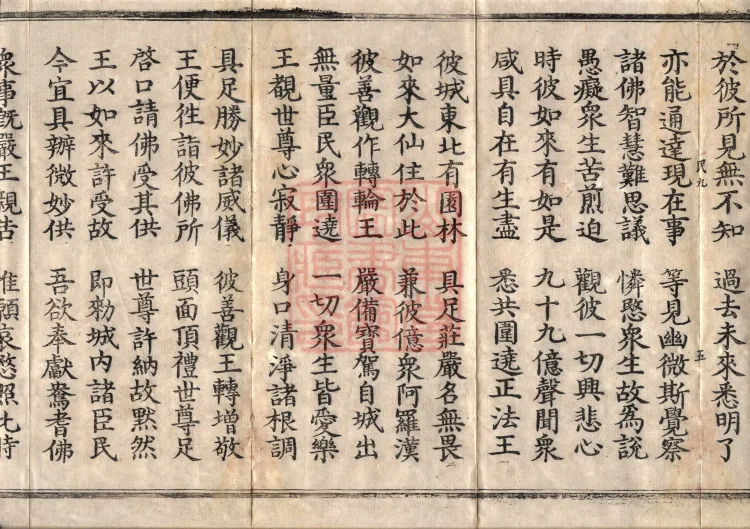 於彼所見無不知 過去未來悉明了
亦能通達現在事 等見幽微斯覺察
民九 五
諸佛智慧難思議 憐愍衆生故為說
愚癡衆生苦煎迫 觀彼一切興悲心
時彼如來有如是 九十九億聲聞衆
咸具自在有生盡 悉共圍遶正法王
彼城東北有園林 具足莊嚴名無畏
如來大仙住於此 兼彼億衆阿羅漢
彼善觀作轉輪王 嚴備寶駕自城出
無量臣民衆圍遶 一切衆生皆愛樂
王覩世尊心寂靜 身口清淨諸根調
具足勝妙諸威儀 彼善觀王轉增敬
王便徃詣彼佛所 頭面頂禮世尊足
啓口請佛受其供 世尊許納故默然
王以如來許受故 即勑城內諸臣民
今宜具辦微妙供 吾欲奉獻鴦耆佛
衆事旣嚴王親告 惟願哀愍照此時